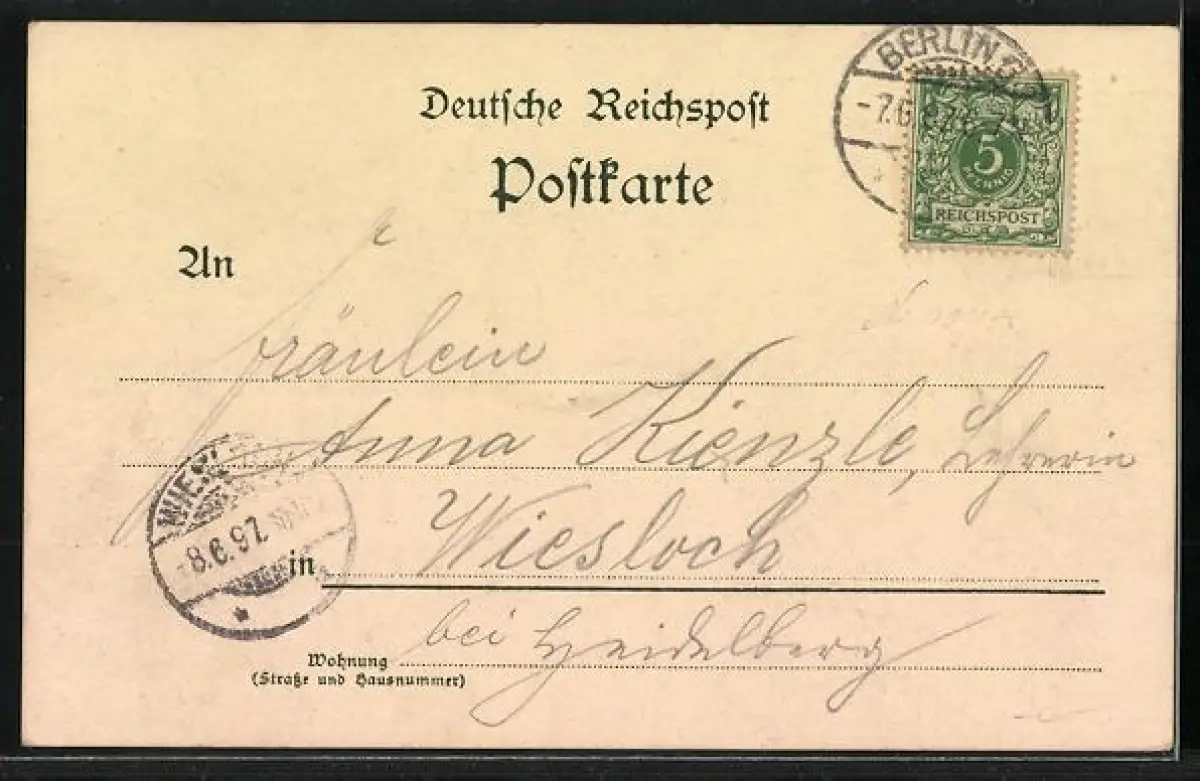 BERLIN C
-7.6.97
5
PFENNIG
REICHSPOST
Deutsche Reichspost
Postkarte
An
Fräulein
Anna Kienzle, Lehrerin
in Wiesloch
bei Heidelberg
Wohnung
(Straße und Hausnummer)
WIES
8.6.97